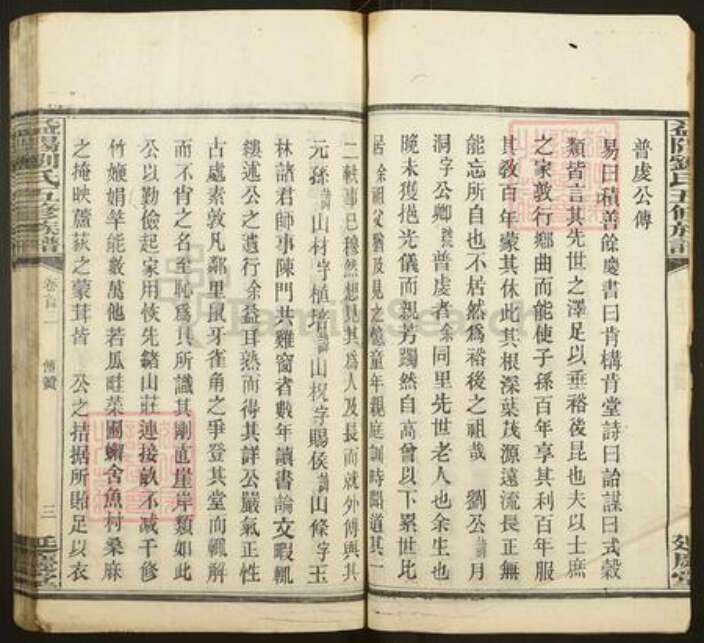 益陽劉氏五修族譜
普虔公傳
易曰積善餘慶書曰肯構肯堂詩曰詒謀曰式穀
類皆言其先世之澤足以垂裕後昆也夫以士庶
之家敦行鄉曲而能使子孫百年享其利百年服
其教百年蒙其休此其根深葉茂源遠流長正無
能忘所自也不居然為裕後之祖哉 劉公諱月
洞字公卿號普虔者余同里先世老人也余生也
晚未獲挹光儀而親芳躅然自高曾以下累世比
居余祖父猶及見之憶童年親庭訓時聞道其一
二軼事已穆然想見其為人及長而就外傅與其
元孫諱山材字植培諱山棁字賜侯諱山條字玉
林諸君師事陳門共雞窗者數年讀書論文暇輒
縷述公之遺行余益耳熟而得其詳公嚴氣正性
古處素敦凡鄰里鼠牙雀角之爭登其堂而輒解
而不肖之名至恥為其所識其剛直崖岸類如此
公以勤儉起家用恢先緒山莊連接畝不減千修
竹嬋娟竿能數萬他若瓜畦菜圃蠏舍魚村桑麻
之掩映蘆荻之蒙茸皆 公之拮据所貽足以衣
益陽劉氏五修族譜
卷首一
傳贊
三
Family Search